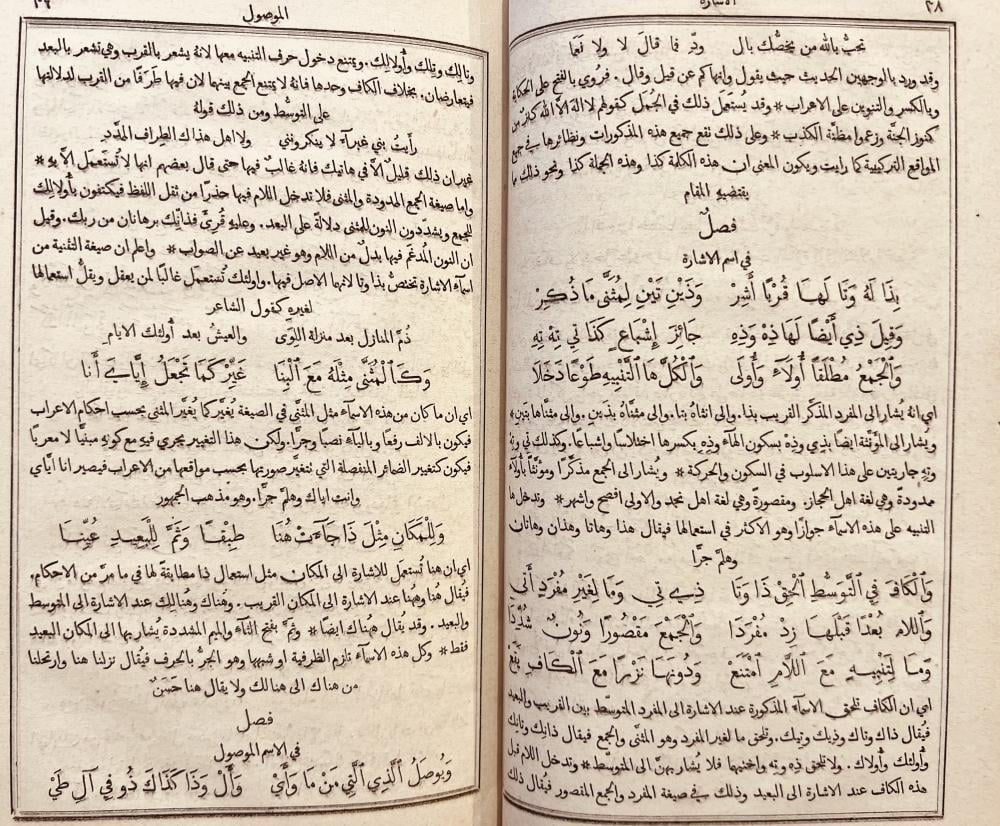 ٢٨
الاشارة
نحبُّ بالله من يخصُّك بال ودّر فا قالَ لا ولا نَعَما
وقد ورد بالوجهين الحديث حيث يقول وانهاكم عن قيل وقال. فرُوي بالفتح على الحكاية
وبالكسر والتنوين على الاعراب * وقد يُستعمَل ذلك في الجُمَل كقولهم لا اله الا الله كنزٌ من
كنوز الجنَّة وزعموا مظنَّة الكذب * وعلى ذلك نقع جميع هذه المذكورات ونظائرها في جميع
المواقع التركيبية كما رايت ويكون المعنى ان هذه الكلمة كذا وهذه الجملة كذا ونحو ذلك مما
يقتضيهِ المقام
فصلٌ
في اسم الاشارة
بِذَا لَهُ وَتَا لَهَا قُرْبًا أَشِرْ وَذَيْنِ تَيْنِ لِمُثَنًّى مَا ذُكِرْ
وَقِيلَ ذِي أَيْضًا لَهَا ذِهْ وَذِهِ جَائِزَ إِشْبَاعٍ كَذَا تِي تِهْ تِهِ
وَٱلْجَمْعُ مُطْلَقًا أُولَآءِ وَأُولَى وَٱلْكُلَّ هَا ٱلتَّنْبِيهِ طَوْعًا دَخَلَا
اي انهُ يُشار الى المفرد المذكَّر القريب بذا. والى انثاهُ بتا. والى مثنَّاهُ بذَينِ. والى مثنَّاها بتَينِ *
ويُشار الى المؤَنَّثة ايضًا بذي وذِهْ بسكون الهآء وذِهِ بكسرها اختلاسًا وإشباعًا. وكذلك تي وتِهْ
وتِهِ جاريتين على هذا الاسلوب في السكون والحركة * ويُشار الى الجمع مذكَّرًا ومؤَنَّثًا بأُولآءِ
ممدودةً وهي لغة اهل الحجاز. ومقصورةً وهي لغة اهل نجد والاولى افصح واشهر * وتدخل ها
التنبيه على هذه الاسمآء جوازًا وهو الاكثر في استعمالها فيقال هذا وهاتا وهذان وهاتان
وهلمَّ جرًّا
وَٱلْكَافَ فِي ٱلتَّوَسُّطِ ٱلْحِقْ ذَا وَتَا ذِي تِي وَمَا لِغَيْرِ مُفْرَدٍ أَتَى
وَٱللَّامَ بُعْدًا قَبْلَهَا زِدْ مُفْرَدَا وَٱلْجَمْعَ مَقْصُورًا وَنُونٌ شُدِّدَا
وَمَا لِتَنْبِيهٍ مَعَ ٱللَّامِ ٱمْتَنَعْ وَدُونَهَا نَزْرًا مَعَ ٱلْكَافِ يَقَعْ
اي ان الكاف تلحق الاسمآء المذكورة عند الاشارة الى المفرد المتوسّط بين القريب والبعيد
فيُقال ذاك وتاك وذيك وتيك. وتلحق ما لغير المفرد وهو المثنَّى والجمع فيقال ذانِك وتانِك
وأُولئك وأُولاك. ولا تلحق ذِه وتِه واختيهما فلا يشار بهنَّ الى المتوسّط * وتدخل اللام قبل
هذه الكاف عند الاشارة الى البعيد وذلك في صيغة المفرد والجمع المقصور فيقال ذلك
الموصول
٢٩
وتالِك وتِلك وأُولالِك. ويمتنع دخول حرف التنبيه معها لانهُ يشعر بالقرب وهي تشعر بالبعد
فيتعارضان. بخلاف الكاف وحدها فانهُ لا يمتنع الجمع بينهما لان فيها طَرَفًا من القرب لدلالتها
على التوسُّط ومن ذلك قولهُ
رأَيتُ بني غبرآءَ لا ينكرونني ولا اهل هذاك الطِراف المدَّدِ
غيران ذلك قليلٌ الَّا في هاتيك فانهُ غالبٌ فيها حتى قال بعضهم انها لا تُستعمَل الَّا بهِ *
واما صيغة الجمع الممدودة والمثنى فلا تدخل اللام فيها حذرًا من ثقل اللفظ فيكتفون بأُولالك
للجمع ويشدّدون النون للمثنى دلالةً على البعد. وعليهِ قُرِئَ فذانِّك برهانان من ربك. وقيل
ان النون المُدغَم فيها بدلٌ من اللام وهو غير بعيد عن الصواب * واعلم ان صيغة التثنية من
اسمآء الاشارة تختصُّ بذا وتا لانهما الاصل فيها. وأُولئك تُستعمل غالبًا لمن يعقل ويقلُّ استعمالها
لغيرهِ كقول الشاعر
ذُمَّ المنازلَ بعد منزلة اللِوَى والعيشَ بعد أُولئك الايامِ
وَكَٱلْمُثَنَّى مِثْلُهُ مَعَ ٱلْبِنَا غَيِّرْ كَمَا تَجْعَلُ إِيَّايَ أَنَا
اي ان ما كان من هذه الاسمآء مثل المثنَّى في الصيغة يُغيَّر كما يُغيَّر المثنى بحسب احكام الاعراب
فيكون بالالف رفعًا وبالياء نصبًا وجرًّا. ولكن هذا التغيير يجري فيهِ مع كونهِ مبنيًّا لا معربًا
فيكون كتغيير الضمائر المنفصلة التي تتغيَّر صورتها بحسب مواقعها من الاعراب فيصير انا ايَّاي
وانت اياك وهلمَّ جرًّا. وهو مذهب الجمهور
وَلِلْمَكَانِ مِثْلَ ذَا جَآءَتْ هُنَا طِبْقًا وَثَمَّ لِلْبَعِيدِ عُيِّنَا
اي ان هنا تُستعمل للاشارة الى المكان مثل استعمال ذا مطابقةً لها في ما مرَّ من الاحكام.
فيُقال هُنا وهٰهنا عند الاشارة الى المكان القريب. وهُناك وهُنالِك عند الاشارة الى المتوسّط
والبعيد. وقد يُقال هٰهُناك ايضًا * وثَمَّ بفتح الثآء والميم المشددة يُشار بها الى المكان البعيد
فقط * وكل هذه الاسمآء تلزم الظرفية او شبهها وهو الجرُّ بالحرف فيُقال نزلنا هنا وارتحلنا
من هناك الى هنالك ولا يقال هنا حَسَنٌ
فصل
في الاسم الموصول
وَيُوصَلُ ٱلَّذِي ٱلَّتِي مَنْ مَا وَأَيْ وَأَلْ وَذَا كَذَاكَ ذُو فِي آلِ طَيْ